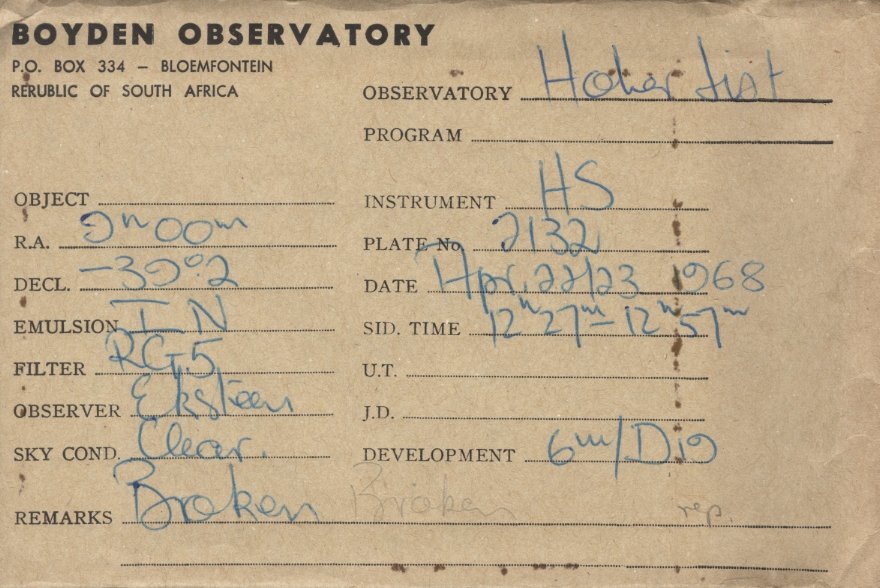 BOYDEN OBSERVATORY
P.O. BOX 334 – BLOEMFONTEIN
RERUBLIC OF SOUTH AFRICA
OBSERVATORY Hoher List
PROGRAM
OBJECT
INSTRUMENT HS
R.A. 9h00m
PLATE No. 2132
DECL. -39°.2
DATE Apr. 22/23 1968
EMULSION I-N
SID. TIME 12h27m – 12h57m
FILTER RG5
U.T.
OBSERVER Eksteen
J.D.
SKY COND. Clear.
DEVELOPMENT 6m/D19
REMARKS Broken Broken rep.